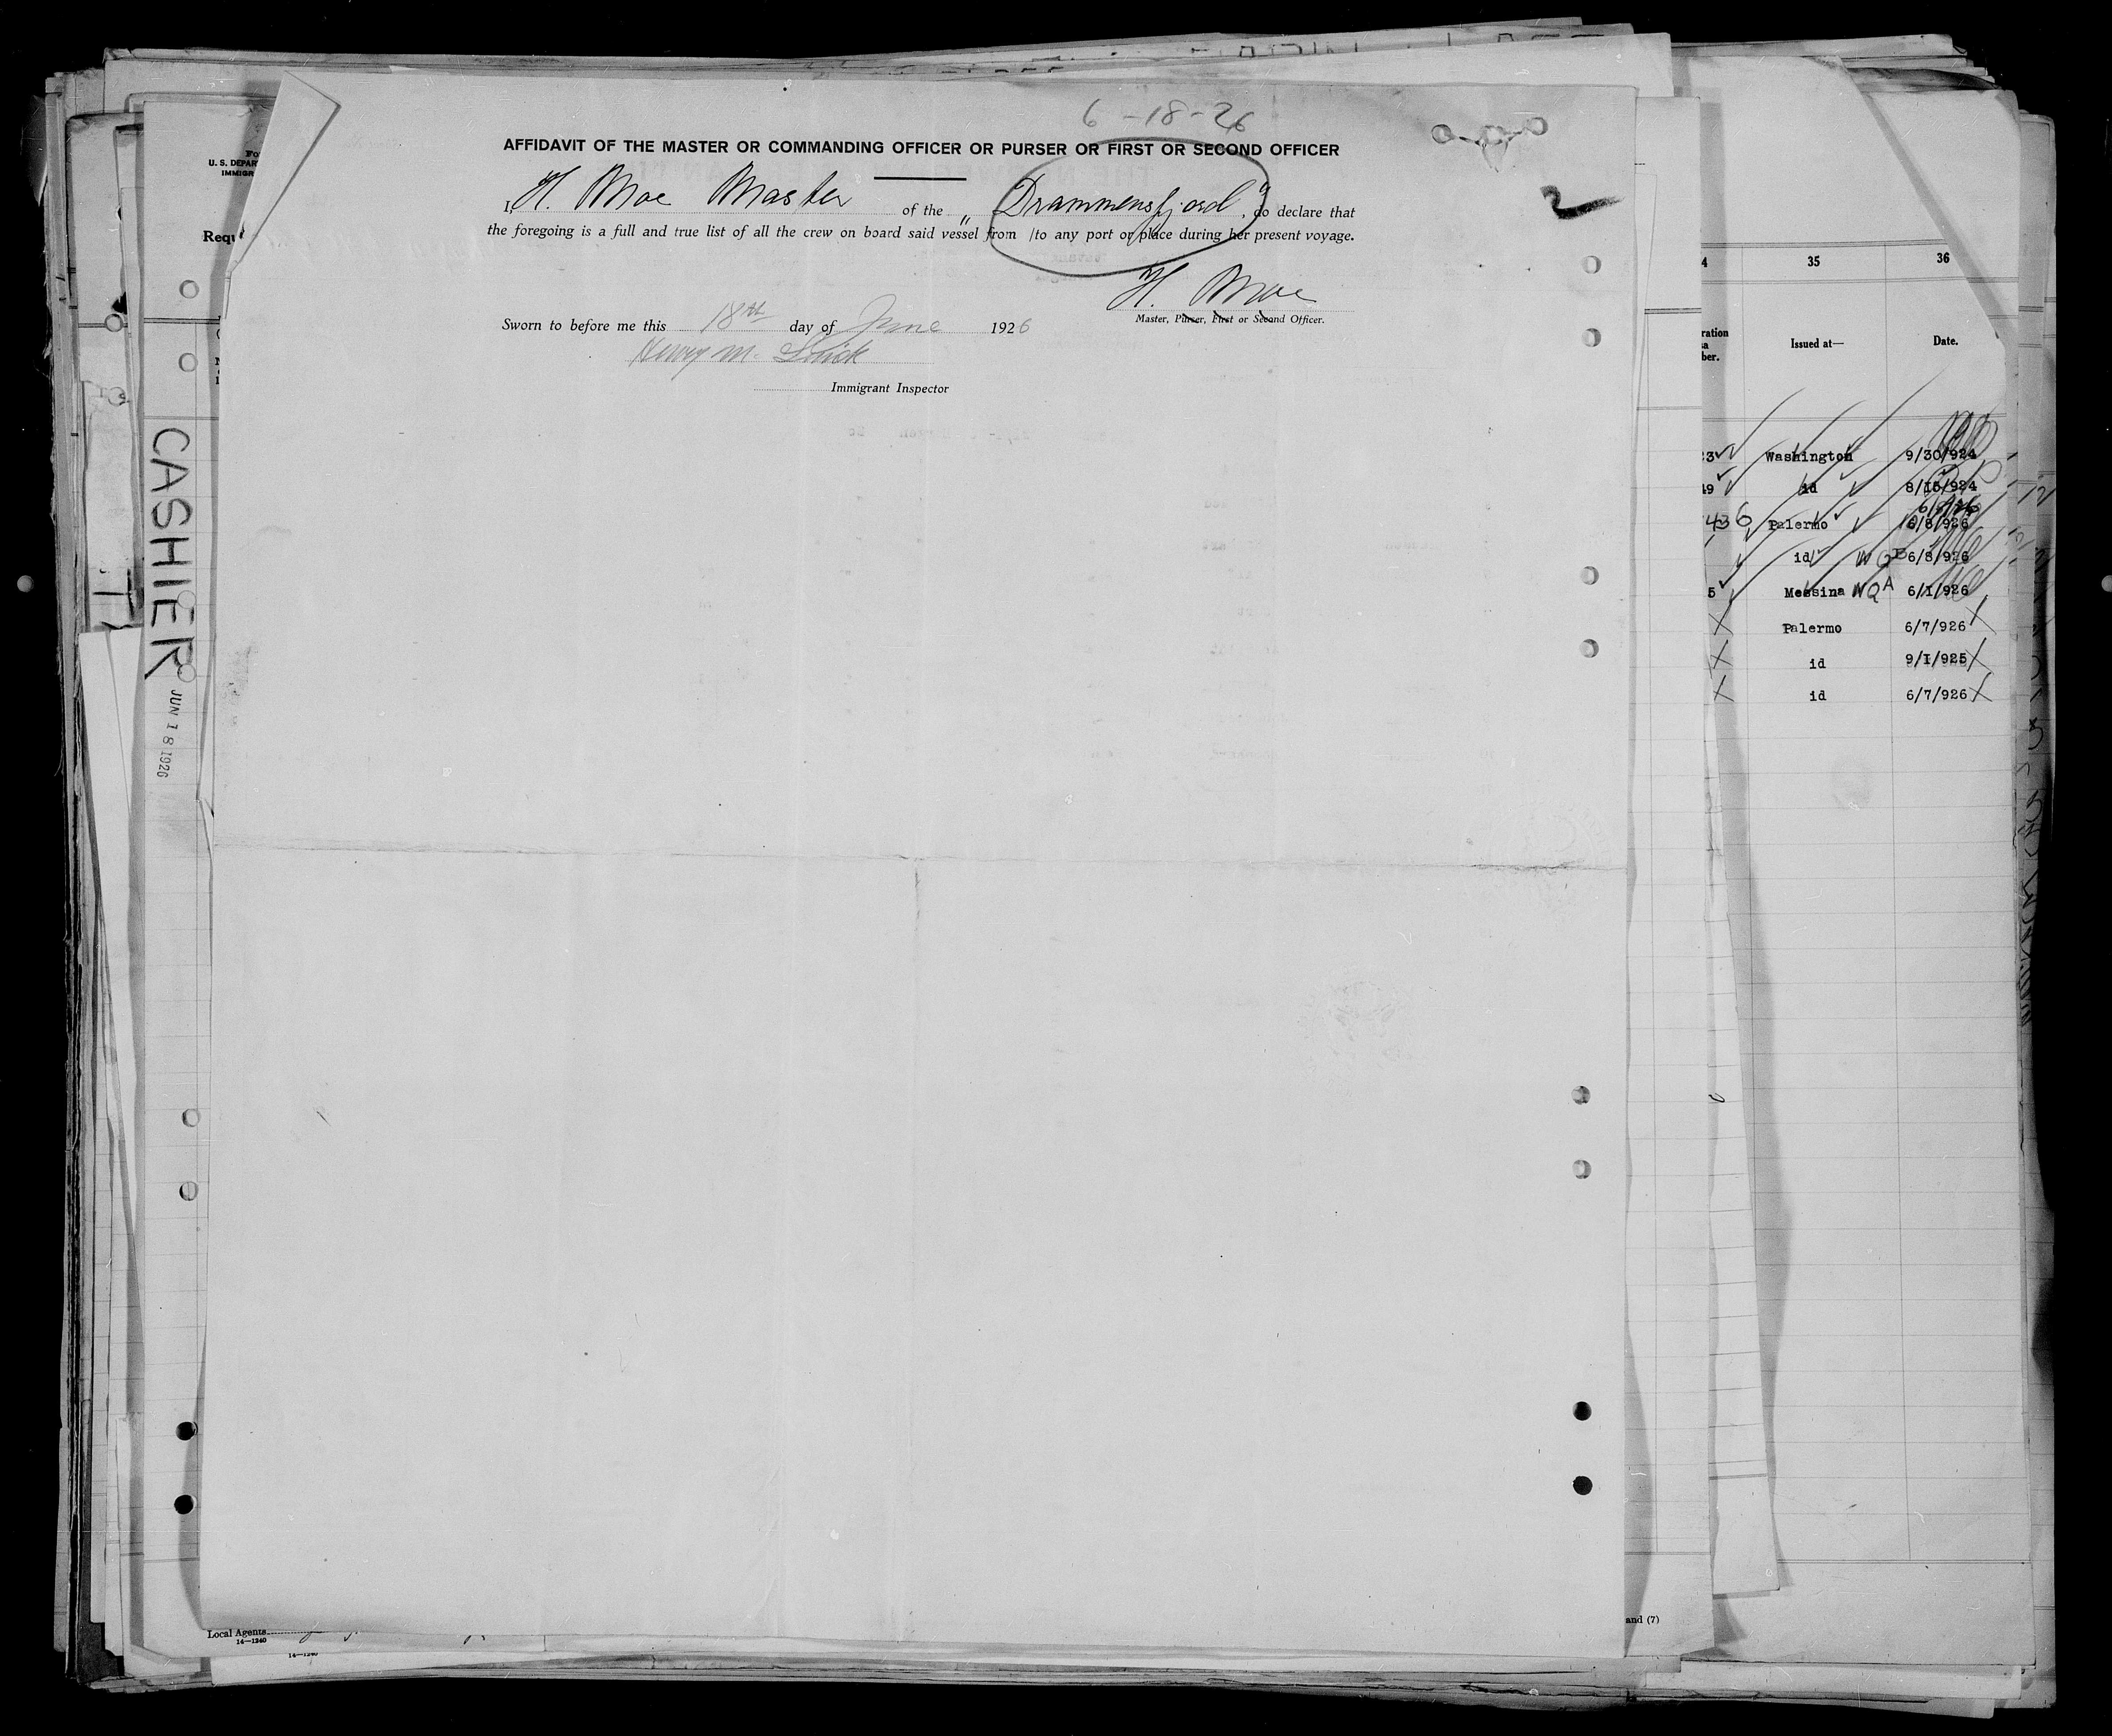 6-18-26
AFFIDAVIT OF THE MASTER OR COMMANDING OFFICER OR PURSER OR FIRST OR SECOND OFFICER
2
I, H. Moe Master of the „Drammensfjord", do declare that
the foregoing is a full and true list of all the crew on board said vessel from /to any port or place during her present voyage.
H. Moe
Master, Purser, First or Second Officer.
Sworn to before me this 18th day of June 1926
Henry M.
Immigrant Inspector
U. S. DEPAR
IMMIGR
Requ
CASHIER
JUN 18 1926
Local Agents
14—1240
14—1240
and (7)
4 35 36
ration
ber.
Issued at—
Date.
23 Washington 9/30/924
49 id 8/15/924
436 Palermo 6/8/926
id NQB 6/8/926
5 Messina NQA 6/1/926
X Palermo 6/7/926 X
X id 9/1/925 X
X id 6/7/926 X